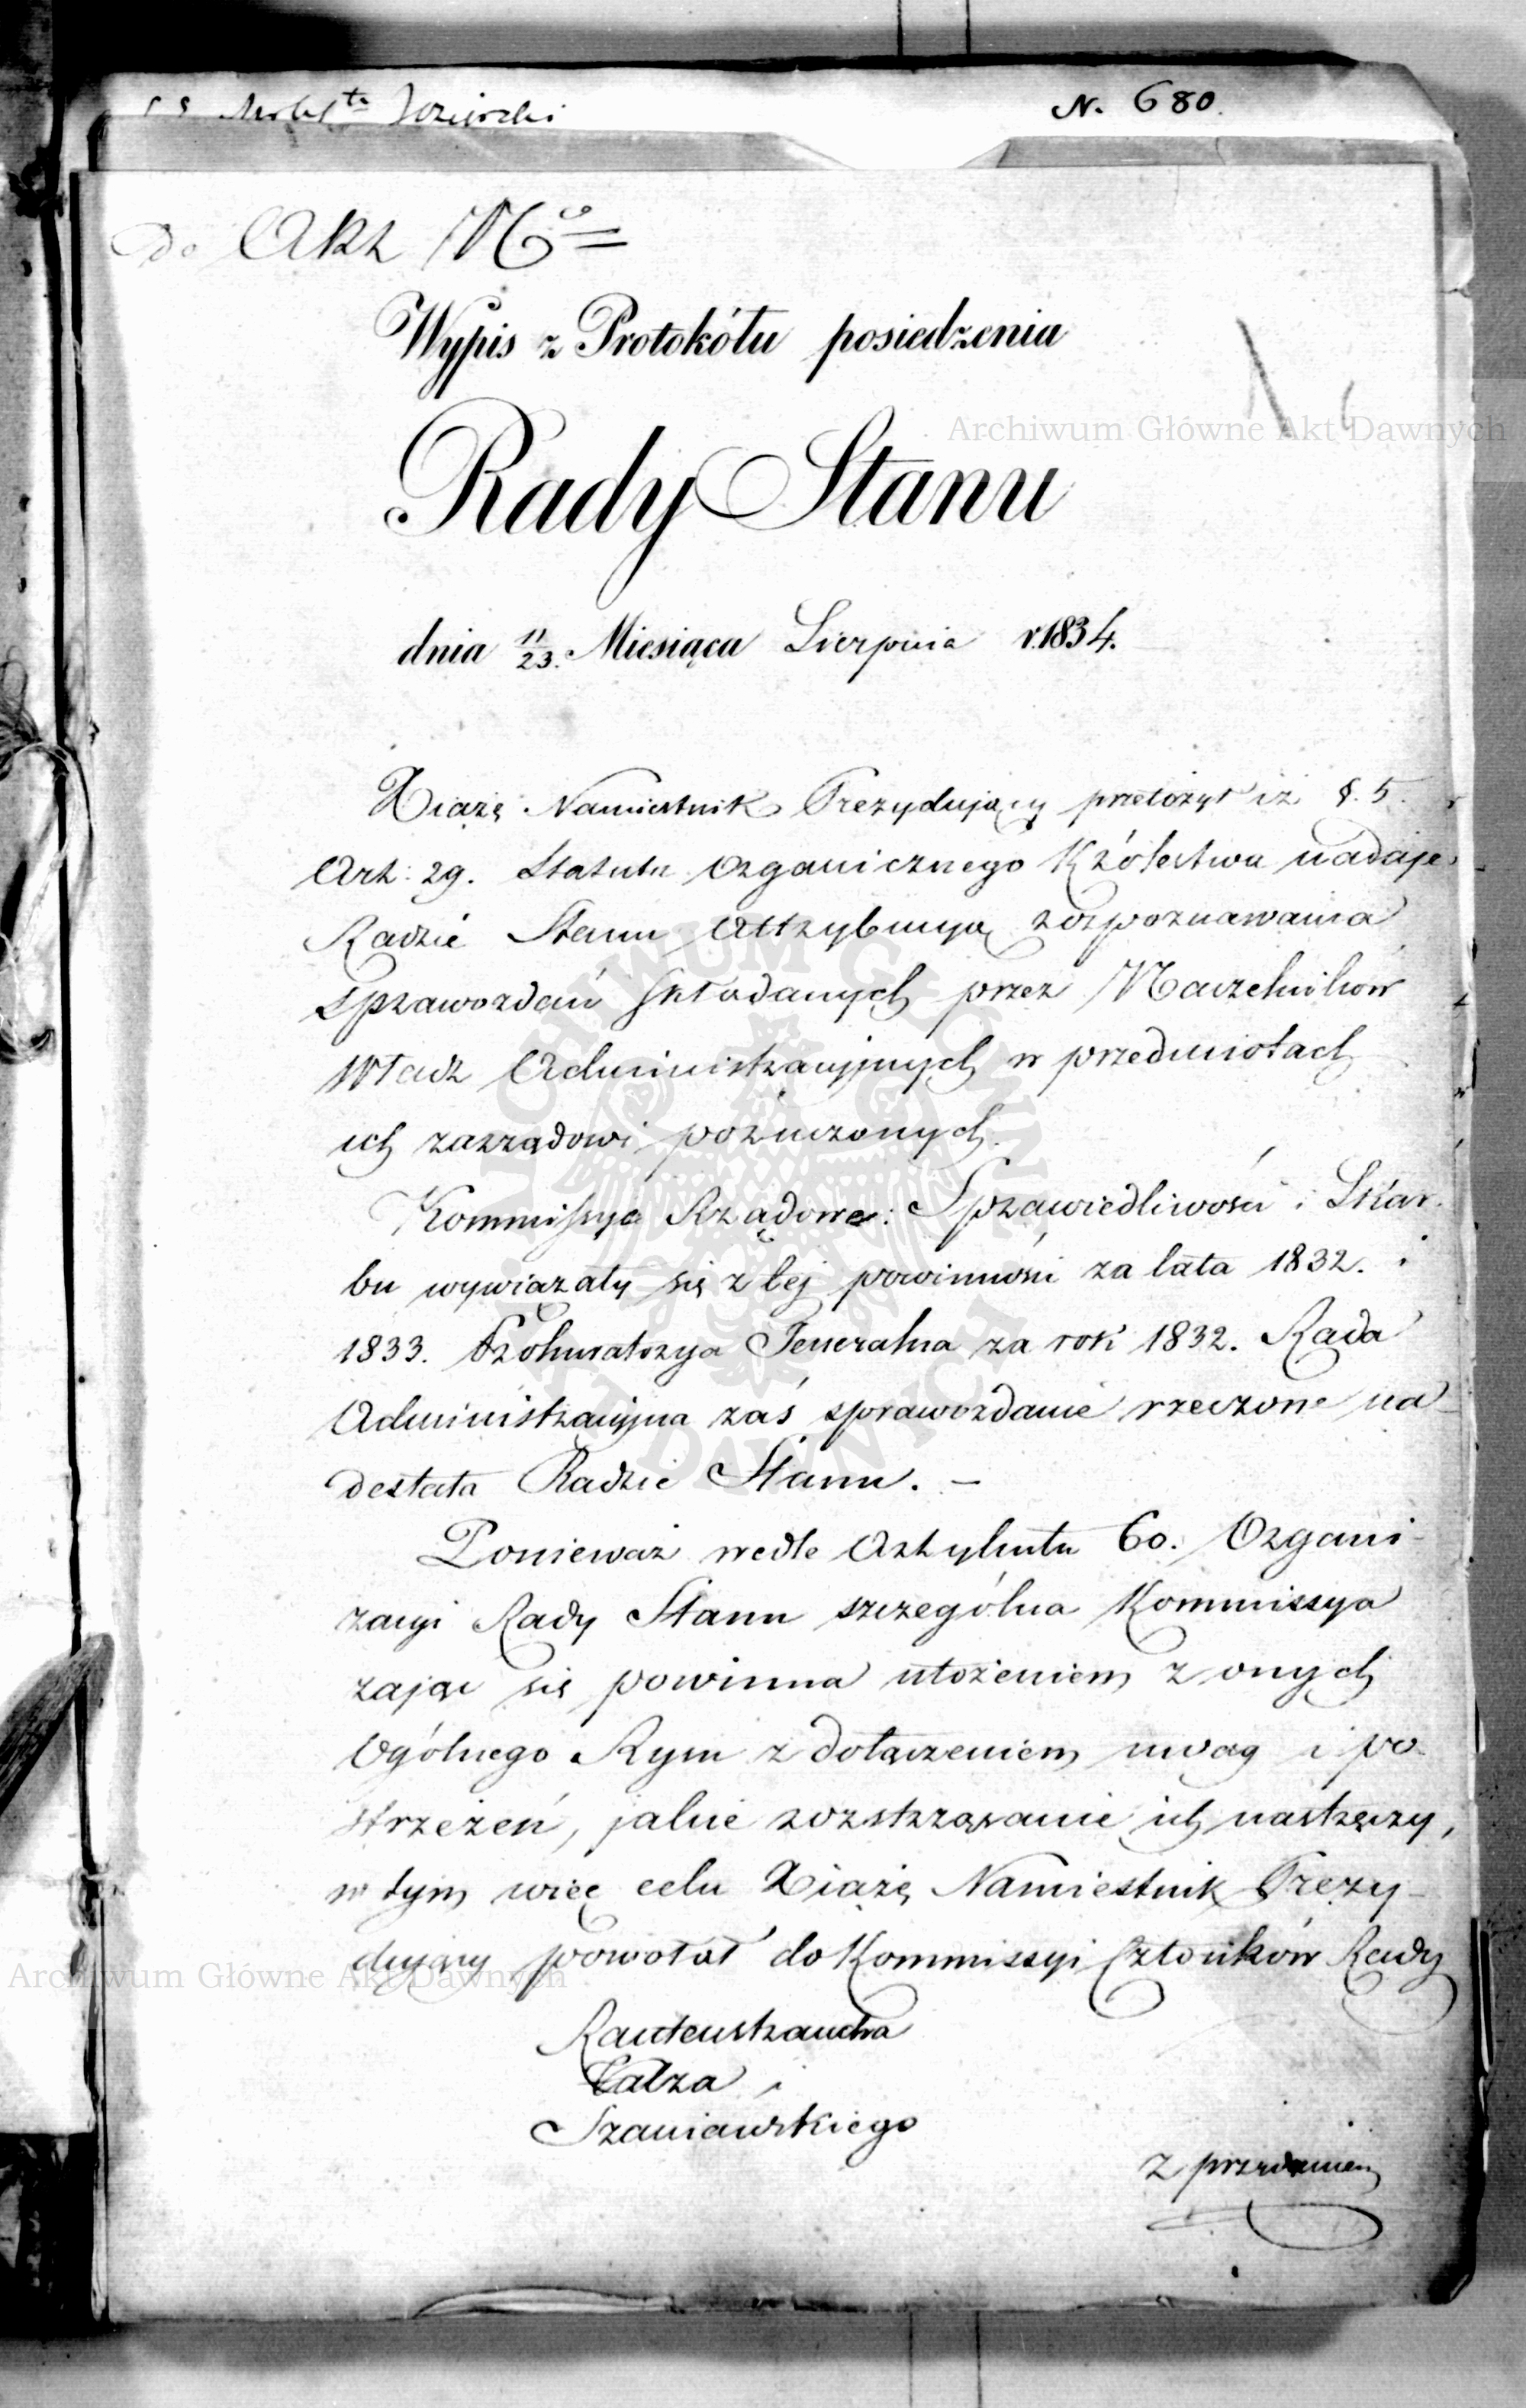 N. 680.
Do Akt
Wypis z Protokółu posiedzenia
Rady Stanu
dnia 11/23. Miesiąca Sierpnia r. 1834.
Xiążę Namiestnik Prezydujący przełożył iż §. 5.
Art: 29. Statutu Organicznego Królestwa nadaje
Radzie Stanu Attrybucyą rozpoznawania
sprawozdań składanych przez Naczelników
Władz Administracyjnych w przedmiotach
ich zarządowi poruczonych.
Kommissye Rządowe: Sprawiedliwości i Skar-
bu wywiązały się z tej powinności za lata 1832. i
1833. Prokuratorya Jeneralna za rok 1832. Rada
Administracyjna zaś sprawozdanie rzeczone na-
desłała Radzie Stanu. —
Ponieważ wedle Artykułu 60. Organi-
zacyi Rady Stanu szczególna Kommissya
zająć się powinna ułożeniem z onych
Ogólnego Rysu z dołączeniem uwag i po-
strzeżeń, jakie roztrząsanie ich nastręczy,
w tym więc celu Xiążę Namiestnik Prezy-
dujący powołał do Kommissyi Członków Rady
Rautenstraucha
Tatza i
Szaniawskiego
z przydaniem
Archiwum Główne Akt Dawnych
Archiwum Główne Akt Dawnych
ARCHIWUM GŁÓWNE AKT DAWNYCH